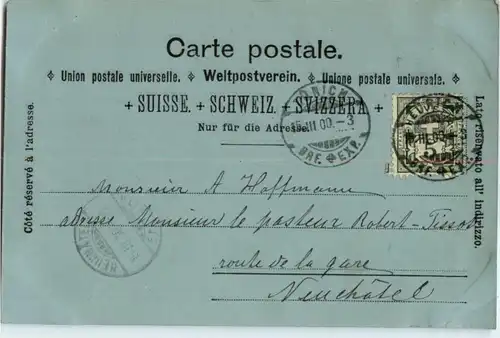 Carte postale.
Union postale universelle. Weltpostverein. Unione postale universale.
+ SUISSE. + SCHWEIZ. + SVIZZERA +
Nur für die Adresse.
Côté réservé à l'adresse.
Lato riservato all' indirizzo.
BRF. EXP.
5
BRF. EXP.
Monsieur A Hoffmann
adresse Monsieur le pasteur Robert-Tissot
route de la gare
Neuchâtel